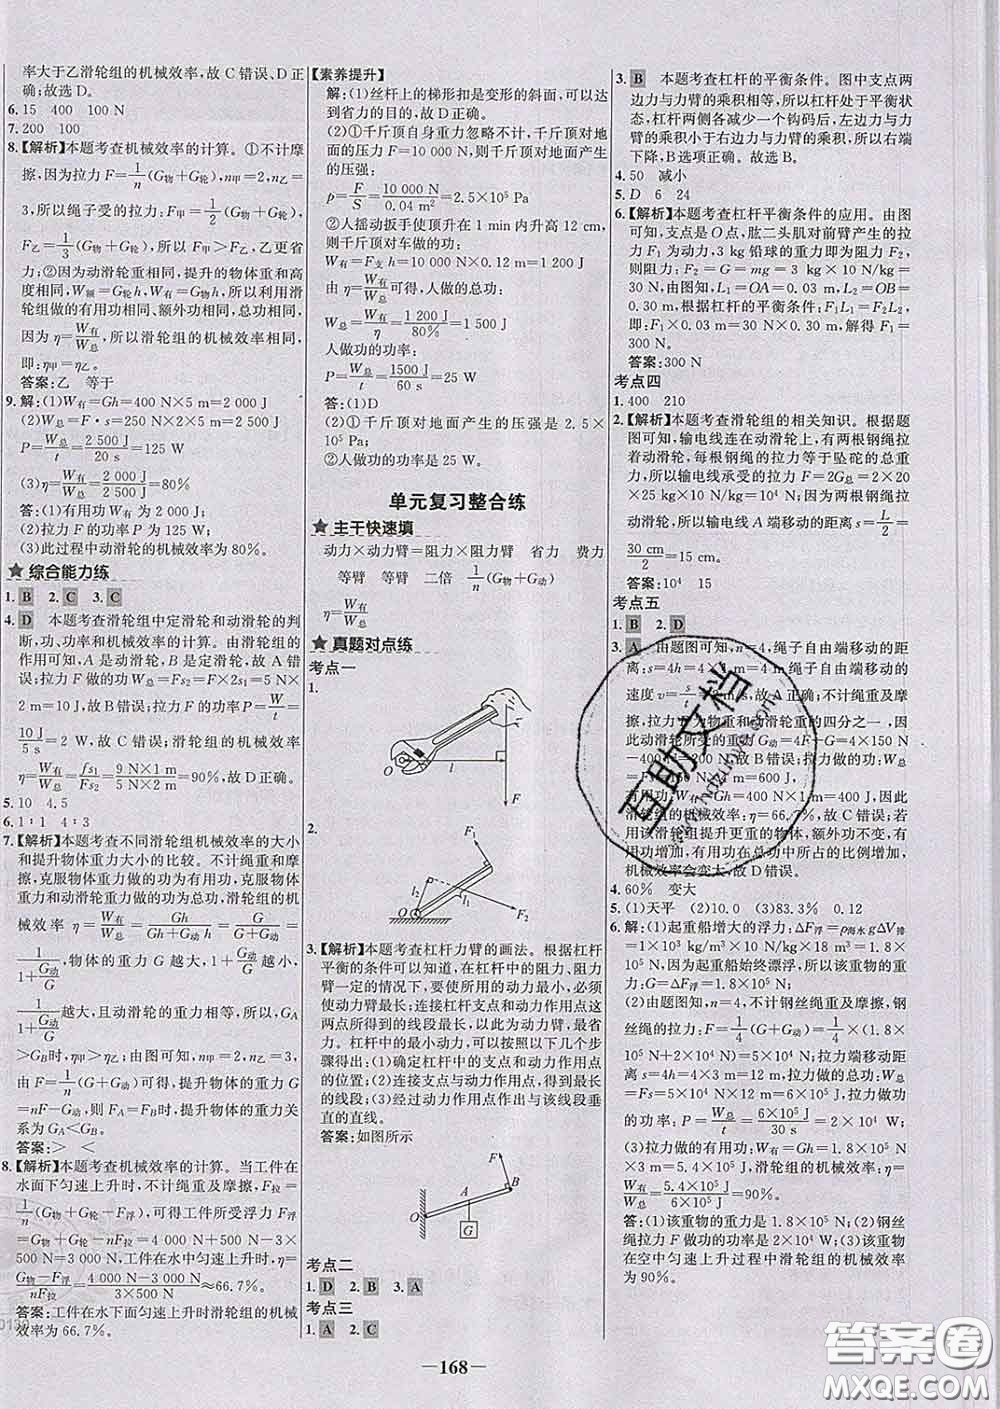 率大于乙滑轮组的机械效率,故 C 错误、D 正
确;故选 D。
6. 15 400 100 N
7. 200 100
8.【解析】本题考查机械效率的计算。①不计摩
擦,因为拉力 F=1/n(G物+G轮),n甲=2,n乙=
3,所以绳子受的拉力:F甲=1/2(G物+G轮),
F乙=1/3(G物+G轮),所以 F甲>F乙,乙更省
力;②因为动滑轮重相同,提升的物体重和高
度相同,W额=G轮h,W有=G物h,所以利用滑
轮组做的有用功相同、额外功相同,总功相同,
因为 η=W有/W总,所以滑轮组的机械效率相同,
即:η甲=η乙。
答案:乙 等于
9. 解:(1)W有=Gh=400 N×5 m=2 000 J
(2)W总=F·s=250 N×2×5 m=2 500 J
P=W总/t=2 500 J/20 s=125 W
(3)η=W有/W总=2 000 J/2 500 J=80%
答:(1)有用功 W有为 2 000 J。
(2)拉力 F 的功率 P 为 125 W。
(3)此过程中动滑轮的机械效率为 80%。
★ 综合能力练
1. B 2. C 3. C
4. D 本题考查滑轮组中定滑轮和动滑轮的判
断,功、功率和机械效率的计算。由滑轮组的
作用可知,A 是动滑轮,B 是定滑轮,故 A 错
误;拉力 F 做的功 W总=Fs=F×2h=5 N×
2 m=10 J,故 B 错误;拉力 F 的功率 P=W总/t=
10 J/5 s=2 W,故 C 错误;滑轮组的机械效率
η=W有/W总=fs1/Fs2=9 N×1 m/5 N×2 m=90%,故 D 正确。
5. 10 4.5
6. 1∶1 4∶3
7.【解析】本题考查不同滑轮组机械效率的大小
和提升物体重力大小的比较。不计绳重和摩
擦,克服物体重力做的功为有用功,克服物体
重力和动滑轮重力做的功为总功,滑轮组的机
械效率 η=W有/W总=Gh/Gh+G动h=G/G+G动=
1/1+G动/G,物体的重力 G 越大,1+G动/G越小,
1/1+G动/G越大,且动滑轮的重力相等,所以,GA
>GB时,η甲>η乙;由图可知,n甲=2,n乙=3,
由 F=1/n(G+G动)可得,提升物体的重力 G
=nF-G动,则 FA=FB时,提升物体的重力关
系为 GA<GB。
答案:> <
8.【解析】本题考查机械效率的计算。当工件在
水面下匀速上升时,不计绳重及摩擦,F拉=
1/n(G物+G轮-F浮)可得工件所受浮力 F浮
=G物+G轮-nF拉=4 000 N+500 N-3×
500 N=3 000 N;工件在水中匀速上升时,
η=G物-F浮/nF拉=4 000 N-3 000 N/3×500 N≈66.7%。
答案:工件在水下面匀速上升时滑轮组的机械
效率为 66.7%。
【素养提升】
解:(1)丝杆上的梯形扣是变形的斜面,可以达到
省力的目的,故 D 正确。
(2)①千斤顶自身重力忽略不计,千斤顶对地面
的压力 F=10 000 N,则千斤顶对地面产生
的压强:
p=F/S=10 000 N/0.04 m²=2.5×10⁵ Pa
②人摇动扳手使顶升在 1 min 内升高 12 cm,
千斤顶对车做的功:
W有=F支h=10 000 N×0.12 m=1 200 J
由 η=W有/W总可得,人做的总功:
W总=W有/η=1 200 J/80%=1 500 J
人做功的功率:
P=W总/t=1500 J/60 s=25 W
答:(1)D
(2)①千斤顶对地面产生的压强是 2.5×
10⁵ Pa。
②人做功的功率是 25 W。
单元复习整合练
★ 主干快速填
动力×动力臂=阻力×阻力臂 省力 费力
等臂 等臂 二倍 1/n(G物+G动)
η=W有/W总
★ 真题对点练
考点一
1.
O l F
2.
F1 l2 l1 O F2
3.【解析】本题考查杠杆力臂的画法。根据杠杆
平衡的条件可以知道,在杠杆中的阻力、阻力
臂一定的情况下,要使所用的动力最小,必须
使动力臂最长;连接杠杆支点和动力作用点这
两点所得到的线段最长,以此为动力臂,最省
力。杠杆中的最小动力,可以按照以下几个步
骤得出:(1)确定杠杆中的支点和动力作用点
的位置;(2)连接支点与动力作用点,得到最长
的线段;(3)经过动力作用点作出与该线段垂
直的直线。
答案:如图所示
F B A O G
考点二
1. D 2. B 3. A
考点三
1. A 2. C
3. B 本题考查杠杆的平衡条件。图中支点两
边力与力臂的乘积相等,所以杠杆处于平衡状
态,杠杆两侧各减少一个钩码后,左边力与力
臂的乘积小于右边力与力臂的乘积,所以右端
下降,B 选项正确。故选 B。
4. 50 减小
5. D 6 24
6.【解析】本题考查杠杆平衡条件的应用。由图
可知,支点是 O 点,肱二头肌对前臂产生的拉
力 F1 为动力,3 kg 铅球的重力为阻力 F2,
则阻力:F2=G=mg=3 kg×10 N/kg=
30 N,由图知:L1=OA=0.03 m,L2=OB=
0.30 m。根据杠杆的平衡条件:F1L1=F2L2,
即:F1×0.03 m=30 N×0.30 m,解得 F1=
300 N。
答案:300 N
考点四
1. 400 210
2.【解析】本题考查滑轮组的相关知识。根据题
图可知,输电线连在动滑轮上,有两根钢绳拉
着动滑轮,每根钢绳的拉力等于坠砣的总重
力,所以输电线承受的拉力 F=2G=2×20
×25 kg×10 N/kg=10⁴ N;有两根钢绳拉
动滑轮,所以输电线 A 端移动的距离 s=L/2=
30 cm/2=15 cm。
答案:10⁴ 15
考点五
1. B 2. D
3. A 由题图可知,n=4,绳子自由端移动的距
离:s=4h=4×1 m=4 m,绳子自由端移动的
速度 v=s/ m/s,故 A 正确;不计绳重及摩
擦,拉力 物重和动滑轮重的四分之一,因
此动滑轮所受的重力 G动=4F=4×150 N
-400 N=200 N,故 B 错误;拉力做的功:W总
=Fs=150 N×4 m=600 J,
有用功:W有=Gh=400 J,
滑轮组的机械效率:η= ≈66.7%,故 C 错误;若
用该滑轮组提升更重的物体,额外功不变,有
用功增加,有用功在总功中所占的比例增加,
机械效率会变大,故 D 错误。
4. 60% 变大
5. (1)天平 (2)10.0 (3)83.3% 0.12
6. 解:(1)起重船增大的浮力:ΔF浮=ρ海水gΔV排
=1×10³ kg/m³×10 N/kg×18 m³=1.8×
10⁵ N;因为起重船始终漂浮,所以该重物的重
力:G=ΔF浮=1.8×10⁵ N。
(2)由题图知,n=4,不计钢丝绳重及摩擦,钢
丝绳的拉力:F=1/4(G+G动)=1/4×(1.8×
10⁵ N+2×10⁴ N)=5×10⁴ N;拉力端移动距
离:s=4h=4×3 m=12 m,拉力做的功:W总=
Fs=5×10⁴ N×12 m=6×10⁵ J,拉力 F 做
功的功率:P=W总/t=6×10⁵ J/30 s=2×10⁴ W。
(3)拉力做的有用功:W有=Gh=1.8×10⁵ N
×3 m=5.4×10⁵ J,滑轮组的机械效率:η=
W有/W总=5.4×10⁵ J/6×10⁵ J=90%。
答:(1)该重物的重力是 1.8×10⁵ N。(2)钢丝
绳拉力 F 做功的功率是 2×10⁴ W。(3)该重物
在空中匀速上升过程中滑轮组的机械效率
为 90%。
— 168 —
互助文档
答案圈
MXQE.COM